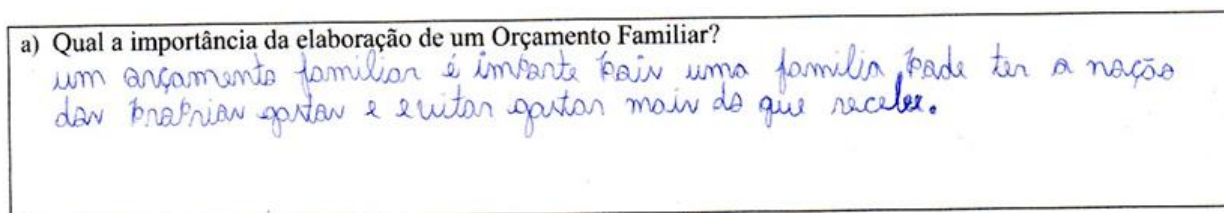 a) Qual a importância da elaboração de um Orçamento Familiar?
um orçamento familiar é importe pois uma família, pode ter a noção
dos proprios gastos e evitar gastar mais do que recebe.